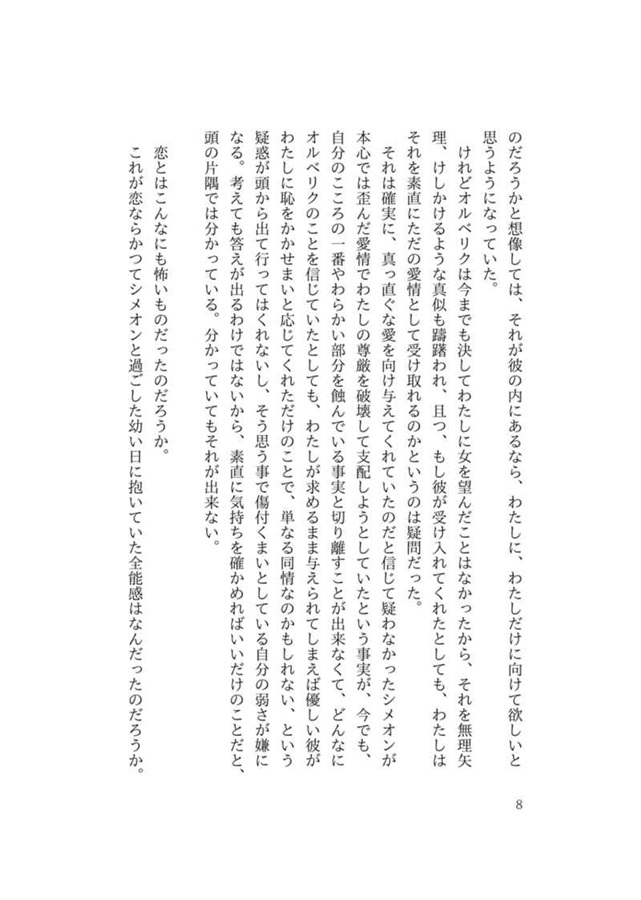 のだろうかと想像しては、それが彼の内にあるなら、わたしに、わたしだけに向けて欲しいと
思うようになっていた。
けれどオルベリクは今までも決してわたしに女を望んだことはなかったから、それを無理矢
理、けしかけるような真似も躊躇われ、且つ、もし彼が受け入れてくれたとしても、わたしは
それを素直にただの愛情として受け取れるのかというのは疑問だった。
それは確実に、真っ直ぐな愛を向け与えてくれていたのだと信じて疑わなかったシメオンが
本心では歪んだ愛情でわたしの尊厳を破壊して支配しようとしていたという事実が、今でも、
自分のこころの一番やわらかい部分を蝕んでいる事実と切り離すことが出来なくて、どんなに
オルベリクのことを信じていたとしても、わたしが求めるまま与えられてしまえば優しい彼が
わたしに恥をかかせまいと応じてくれただけのことで、単なる同情なのかもしれない、という
疑惑が頭から出て行ってはくれないし、そう思う事で傷付くまいとしている自分の弱さが嫌に
なる。考えても答えが出るわけではないから、素直に気持ちを確かめればいいだけのことだと、
頭の片隅では分かっている。分かっていてもそれが出来ない。
恋とはこんなにも怖いものだったのだろうか。
これが恋ならかつてシメオンと過ごした幼い日に抱いていた全能感はなんだったのだろうか。
8